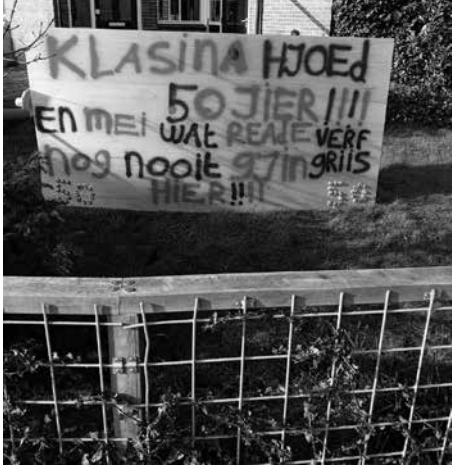 KLASINA HJOEd
50 JIER!!!!
EN mEi WAt REAJE VERF
nog nooit gJin gRIIS
50 HIER!!!! 50